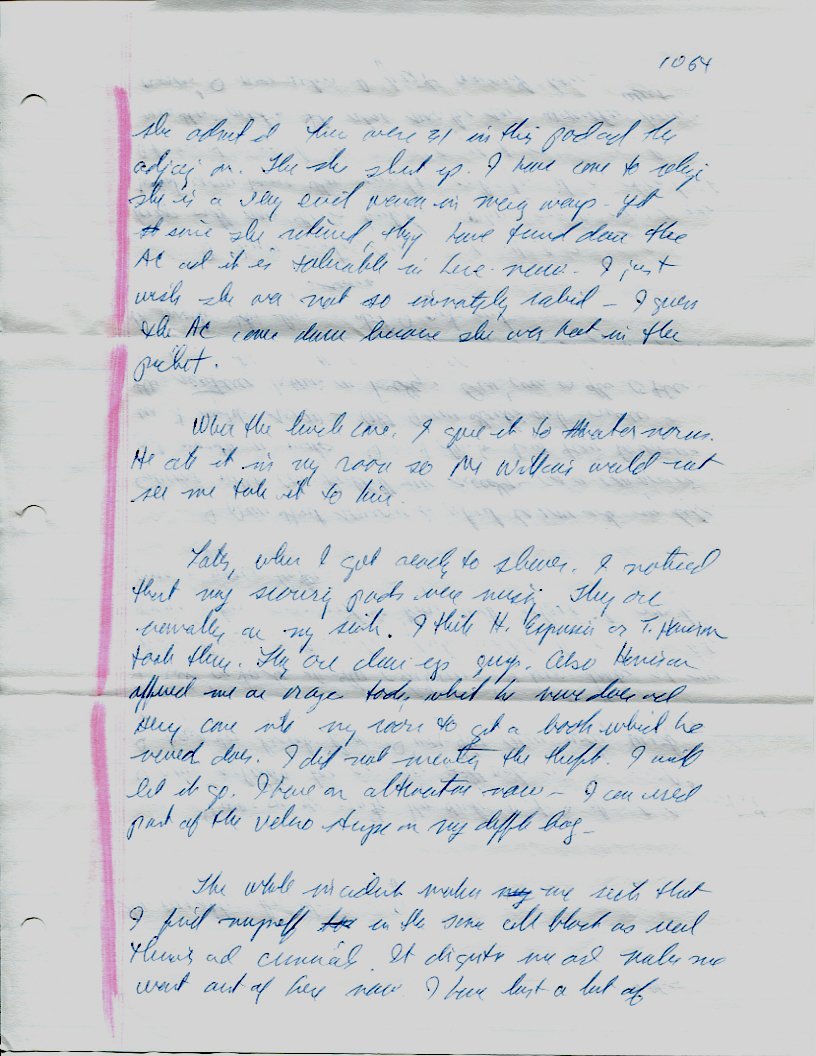 1064
she admitted there were 21 in this pod and the
adjoing on. The she shut up. I have come to
she is a very evil in many ways - yet
since she retired, they have turned down the
AC ad it is tolerable in here now - I just
wish she was not so innately rabid - I guess
the AC came down because she was hot in the
When the lunch came. I gave it to
He ate it in my room so Mr would not
see me take it to him.
Later, when I got ready to shower. I noticed
that my scouring pads were missing. They are
normally on my sink. I think H. or T. Harrison
took them. They are guys. Also Harrison
offered me an orange today which he never does and
came into my room to get a book which he
never does. I did not mention the theft. I will
let it go. I have an alternative now - I can used
part of the velcro on my duffle bag -
The whole incident makes me sick that
I find myself in the same cell block as real
thieves ad criminals. It disgusts me and makes me
want out of here now. I have lost a lot of